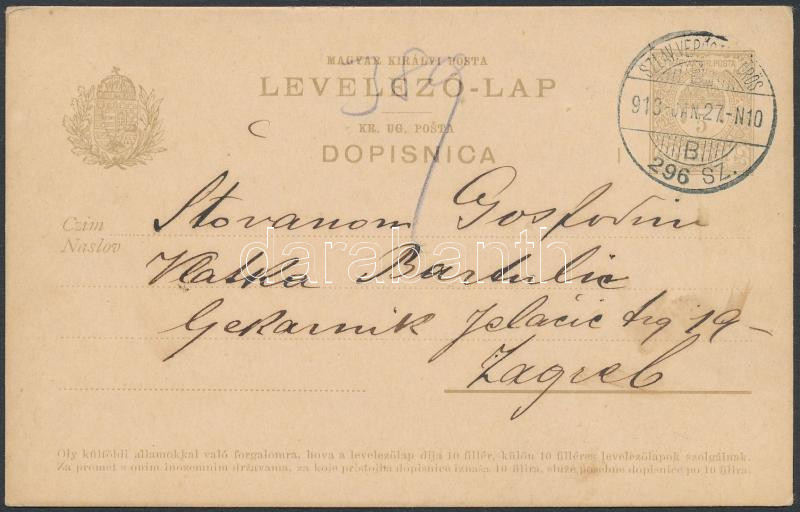 MAGYAR KIRÁLYI POSTA
LEVELEZŐ-LAP
KR. UG. POŠTA
DOPISNICA
589
913-JAN.27.-N10
B
296 SZ.
5
Czim
Naslov
Štovanom Gospodinu
Vlatka Bartulic
Ljekarnik Jelačić trg 19-
Zagreb
darabanth
Oly külföldi államokkal való forgalomra, hova a levelezőlap díja 10 fillér, külön 10 filléres levelezőlapok szolgálnak.
Za promet s onim inozemnim državama, za koje pristojba dopisnice iznaša 10 filira, služe posebne dopisnice po 10 filira.